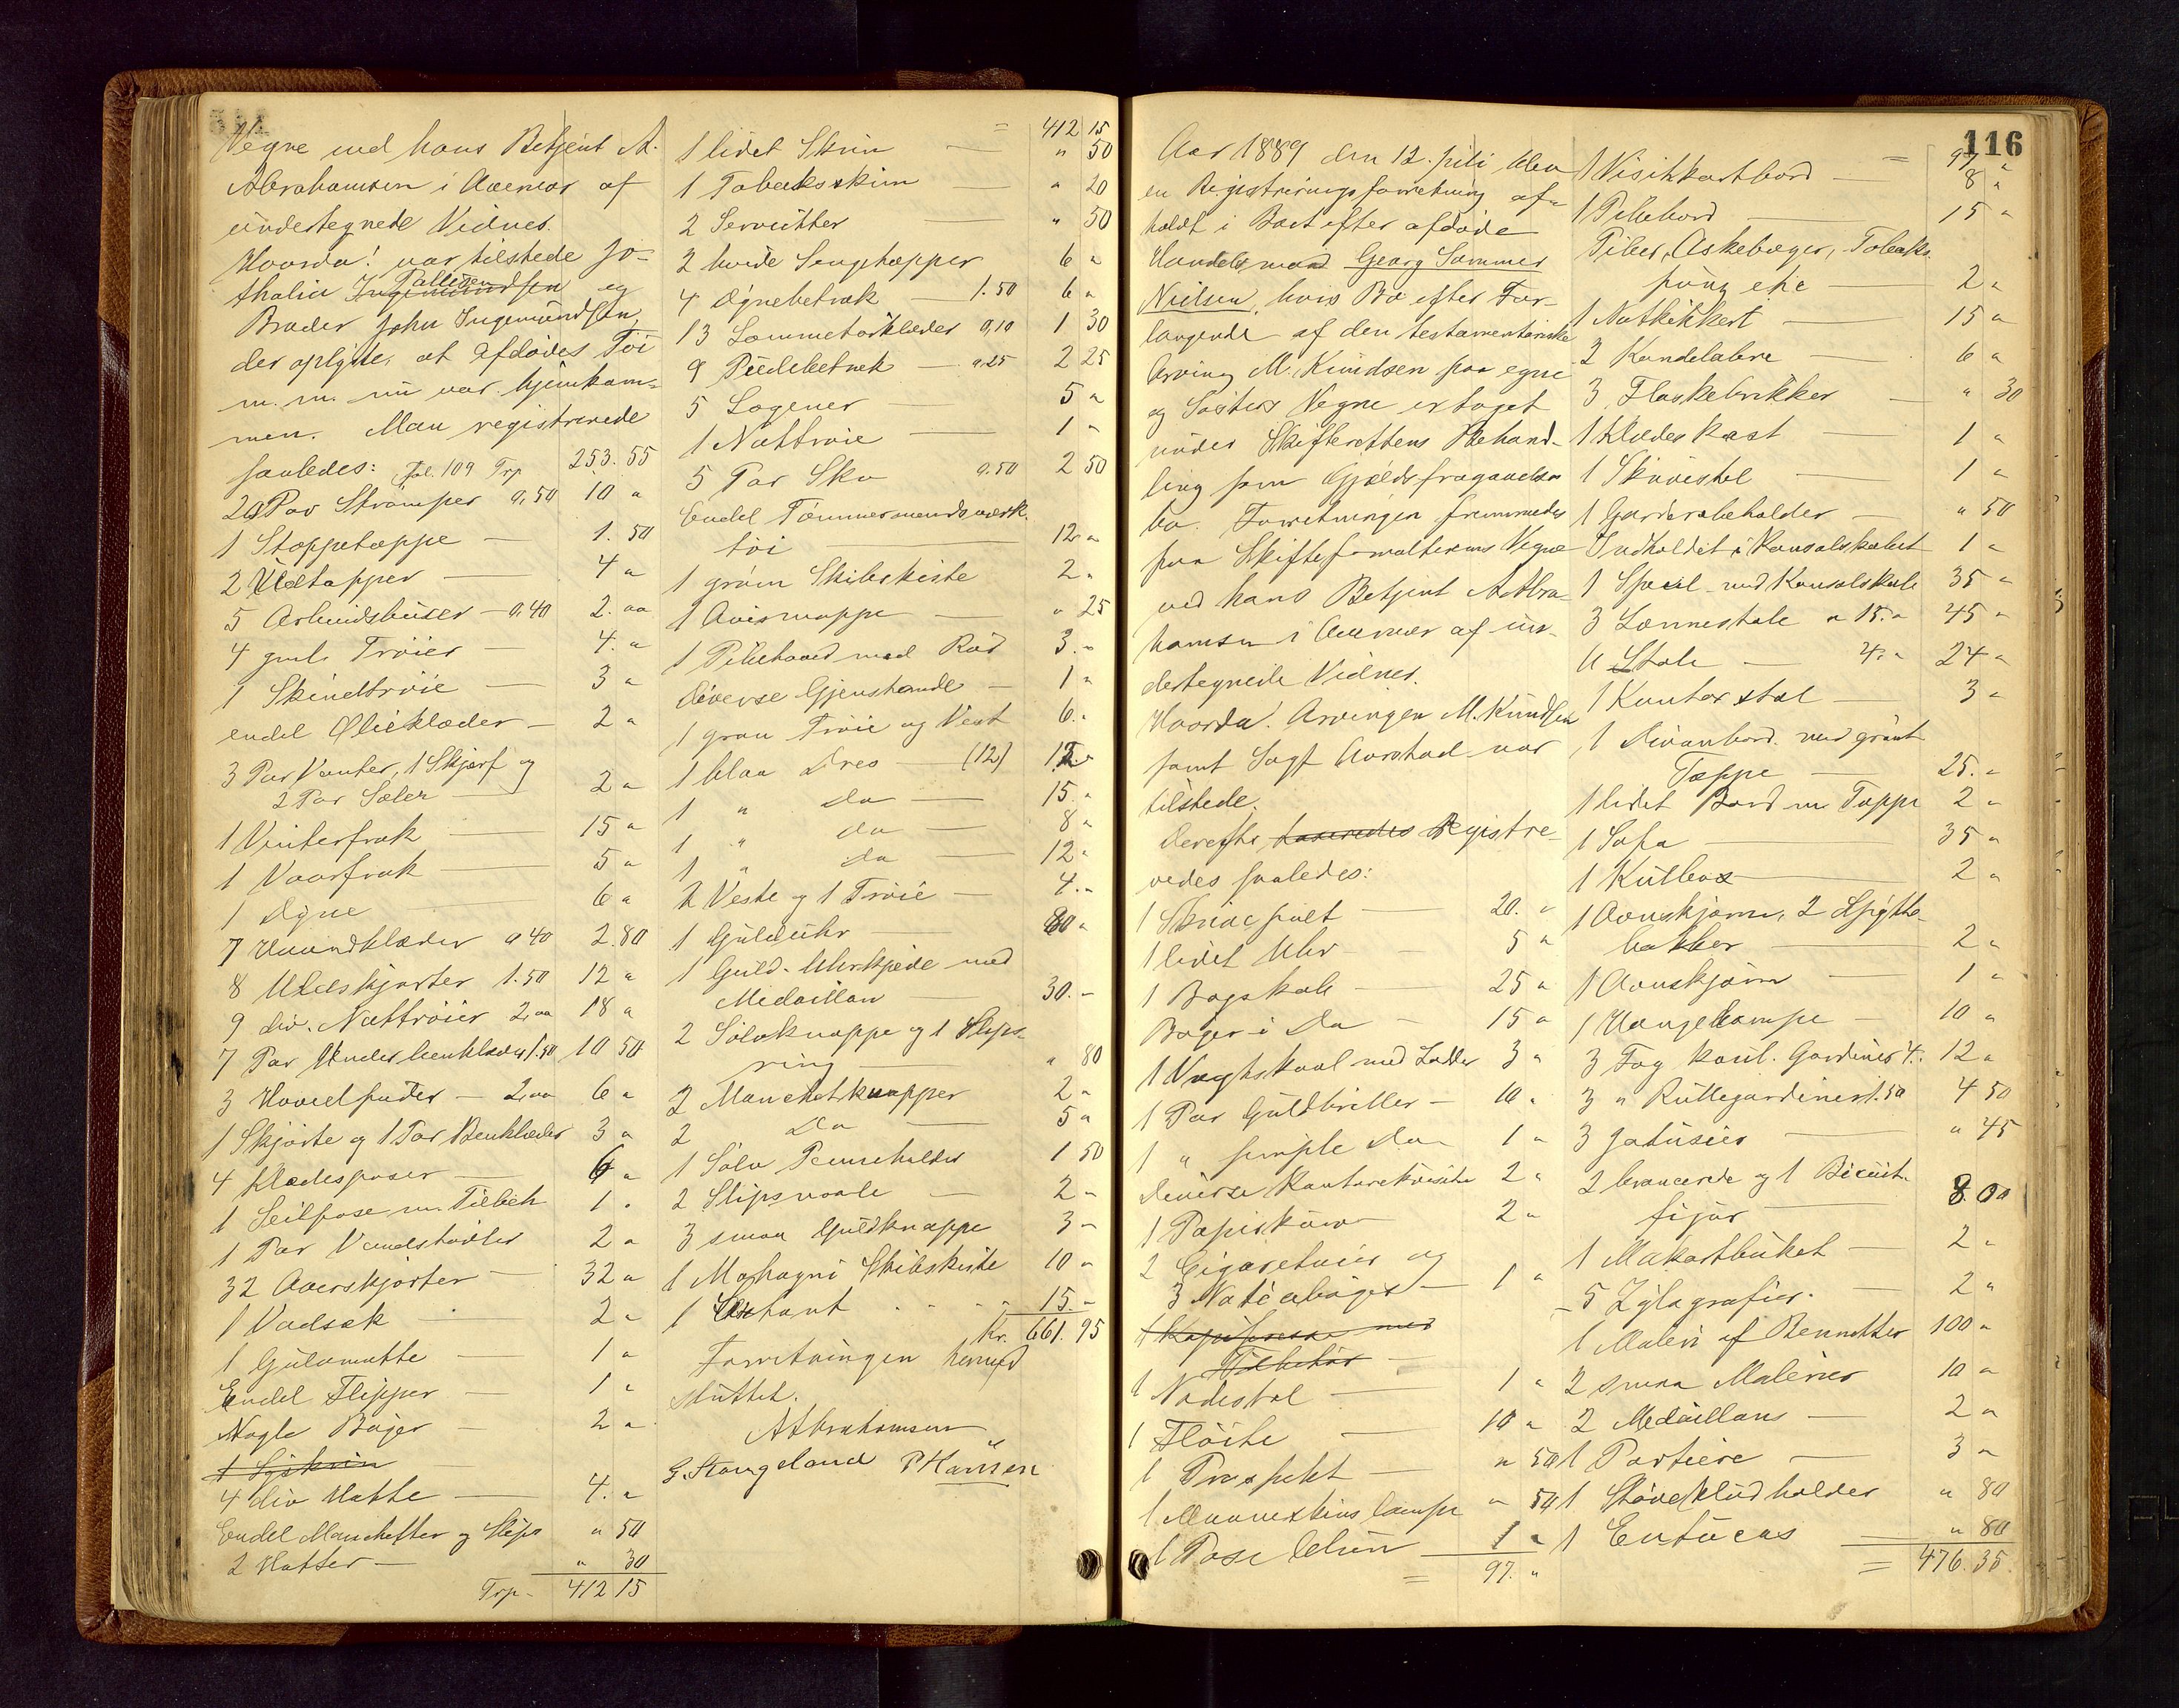 Vegne ved hans Betjent A.
Abrahamsen i Nærvær af
undertegnede Vidner.
Hvorda! var tilstede Jo-
thalia Ingemundsen Pallesen og
Broder John Ingemundsen,
der oplyste, at afdødes Tøi
m. m. nu var hjemkom-
men. Man registrerede
saaledes: Fol. 109 Trp 253.55
20 Par Strømper 0,50 10 "
1 Stoppetæppe — 1.50
2 Uldtæpper — 4 "
5 Arbeidsbuxer — 0,40 2.00
4 gml. Trøier — 4. "
1 Skindtrøie — 3 "
endel Olieklæder — 2 "
3 Par Vanter, 1 Skjærf og
2 Par Sæler — 2 "
1 Vinterfrak — 15 "
1 Vaarfrak — 5 "
1 Dyne — 6 "
7 Haandklæder 0,40 2.80
8 Uldskjorter 1.50 12 "
9 div. Nattrøier 2,00 18 "
7 Par Underbenklæder 1.50 10 50
3 Hovedpuder — 2,00 6 "
1 Skjorte og 1 Par Benklæder 3 "
4 Klædesposer — 6 "
1 Seilpose m. Tilbeh 1 "
1 Par Vandstøvler 2 "
32 Overskjorter — 32 "
1 Vadsæk — 2 "
1 Gulvmatte — 1 "
Endel Flipper — 1 "
Nogle Bøger — 2 "
1 Syskrin
4 div Hatte — 4. "
Endel Manchetter og Slips " 50
2 Hatter — " 30
Trp. 412 15
= 412 15
1 lidet Skrin — " 50
1 Tobaksskrin — " 20
2 Servietter — " 50
2 hvide Sengetæpper 6 "
4 Dynebetræk — 1.50 6 "
13 Lommetørklæder 0,10 1 30
9 Pudebetræk — 0.25 2 25
5 Lagener — 5 "
1 Nattrøie — 1 "
5 Par Sko 0.50 2 50
Endel Tømmermandsværk-
tøi — 12 "
1 grøn Skibskiste 2 "
1 Avismappe — " 25
1 Pibehoved med Rør 3. "
Diverse Gjenstande — 1 "
1 graa Trøie og Vest 6. "
1 blaa Dres — (12) 12 "
1 " Do — 15. "
1 " do — 8 "
1 " do — 12 "
2 Veste og 1 Trøie — 4. "
1 Guldeuhr — 80 "
1 Guld-Uhrkjede med
Medaillon — 30. "
2 Sølvknappe og 1 Slips-
ring — " 80
2 Manchetknapper 2 "
2 Do — 5 "
1 Sølv Penneholder 1 50
2 Slipsnaale — 2 "
3 smaa Guldknappe 3 "
1 Mahogni Skibskiste 10 "
1 Sextant 15. "
Kr. 661. 95
Forretningen hermed
sluttet.
A Abrahamsen
G. Stangeland P Hansen
116
Aar 1889 den 12. Juli blev
en Registreringsforretning af-
holdt i Boet efter afdøde
Handelsmand Georg Sømmer
Nielsen, hvis Bo efter For-
langende af den testamentariske
Arving M. Knudsen paa egne
og Søsters Vegne er taget
under Skifterettens Behand-
ling som Gjældsfragaaelses
bo. Forretningen fremmedes
paa Skifteforvalterens Vegne
ved hans Betjent A. Abra-
hamsen i Nærvær af un-
dertegnede Vidner.
Hvorda! Arvingen M. Knudsen
samt Sagf Aarstad var
tilstede.
Derefter taxeredes Registre-
redes saaledes:
1 Skrivepult — 20. "
1 lidet Uhr — 5 "
1 Bogskab — 25 "
Bøger i Do — 15 "
1 Vægtskaal med Lodder 3 "
1 Par Guldbriller — 10 "
1 " simple Do 1 "
Diverse Kontorrekvisita 2 "
1 Papirkurv 2 "
2 Cigaretuier og
3 Notitsbøger — 1 "
1 Kopipresse med
Tilbehør —
1 Nodestol — 1 "
1 Fløite — 10 "
1 Prospekt — " 50
1 Maaneskinslampe " 50
1 Pose Uhin 1 "
= 97. "
= 97 "
1 Visitkartbord — 8 "
1 Pibebord — 15 "
Piber, Askebæger, Tobaks-
pung etc — 2 "
1 Natkikkert — 15 "
2 Kandelabre — 6 "
3 Flaskebrikker — " 30
1 Klædeskost — 1 "
1 Skruestol — 1 "
1 Garderobeholder — " 50
Indholdet i Konsolskabet 1 "
1 Speil med Konsolskab 35 "
3 Lænestole a 15. " 45 "
6 Stole — 4. " 24 "
1 Kontorstol — 3 "
1 Divanbord med grønt
Tæppe — 25. "
1 lidet Bord m Tæppe 2 "
1 Sofa — 35 "
1 Kulbox — 2 "
1 Ovnskjærm, 2 Spytte-
bakker — 2 "
1 Ovnskjærm — 1 "
1 Hængelampe — 10 "
3 Fag koul. Gardiner 4. 12 "
3 " Rullegardiner 1.50 4 50
3 Jalusier — " 45
2 broncerede og 1 Bicuit-
figur — 8. 00
1 Makartbuket — 2 "
5 Zylografier. — 2 "
1 Maleri af Bennetter 100 "
2 smaa Malerier 10 "
2 Medaillons — 2 "
1 Portiere — 3 "
1 Støveklud holder " 80
1 Entucas " 80
= 476. 35